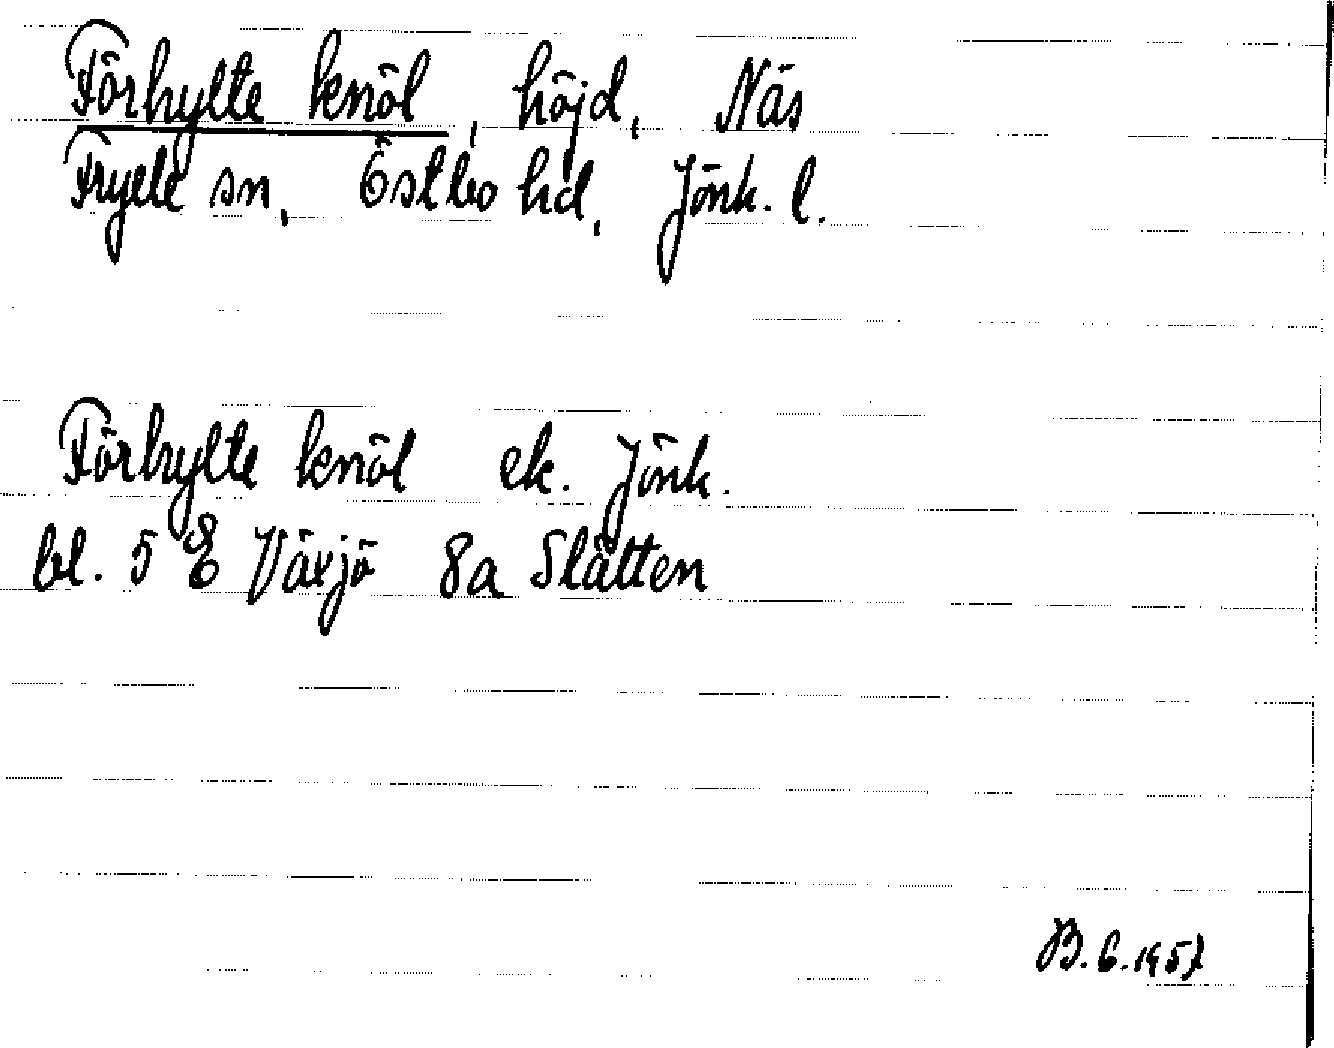 Förhylte knöl, höjd, Näs
Fryele sn, Östbo hd, Jönk. l.
Förhylte knöl ek. Jönk.
bl. 5 E Växjö 8a Slätten
B.G. 1957